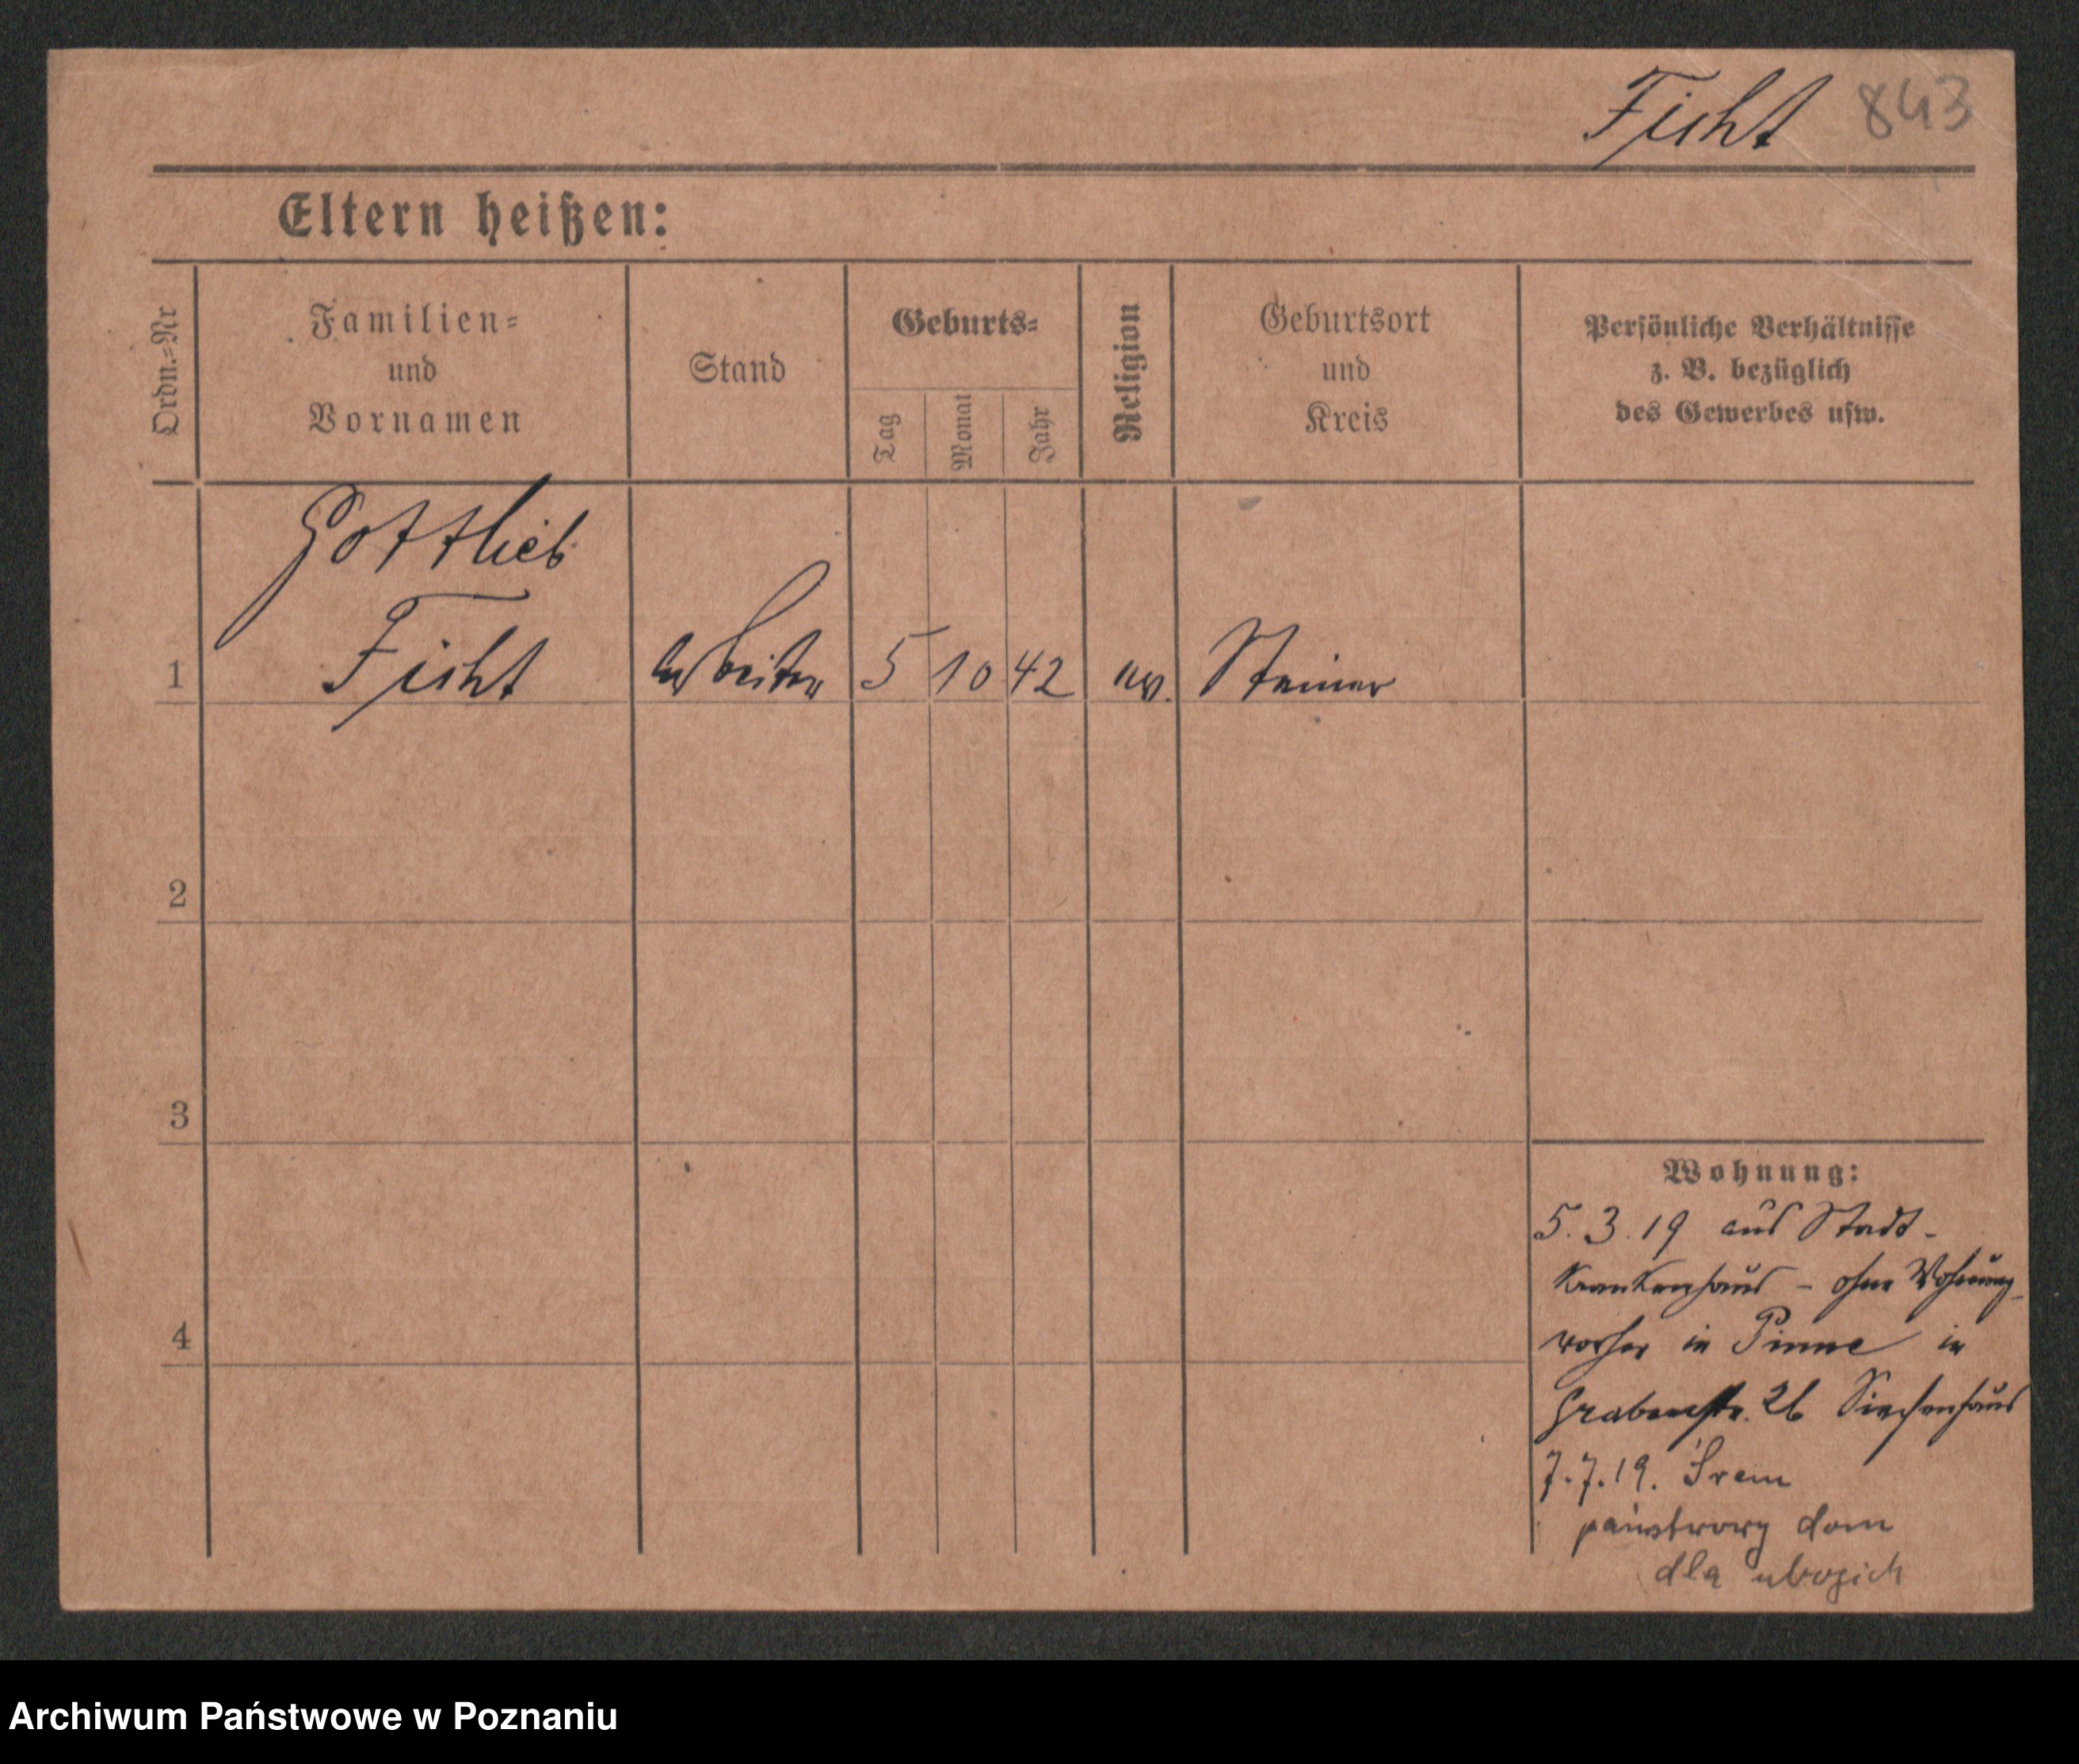 Ficht 843
Eltern heißen:
Ordn.=Nr
Familien=
und
Vornamen
Stand
Geburts=
Tag
Monat
Jahr
Religion
Geburtsort
und
Kreis
Persönliche Verhältnisse
z. B. bezüglich
des Gewerbes usw.
Gottlieb
1 Ficht Arbeiter 5 10 42 ev.
2
3
4
Wohnung:
5.3.19 aus Stadt-
Krankenhaus - ohne Wohnung
vorher in Pinne in
Grabenstr. 26 Siechenhaus
7.7.19. Śrem
państwowy dom
dla ubogich
Archiwum Państwowe w Poznaniu